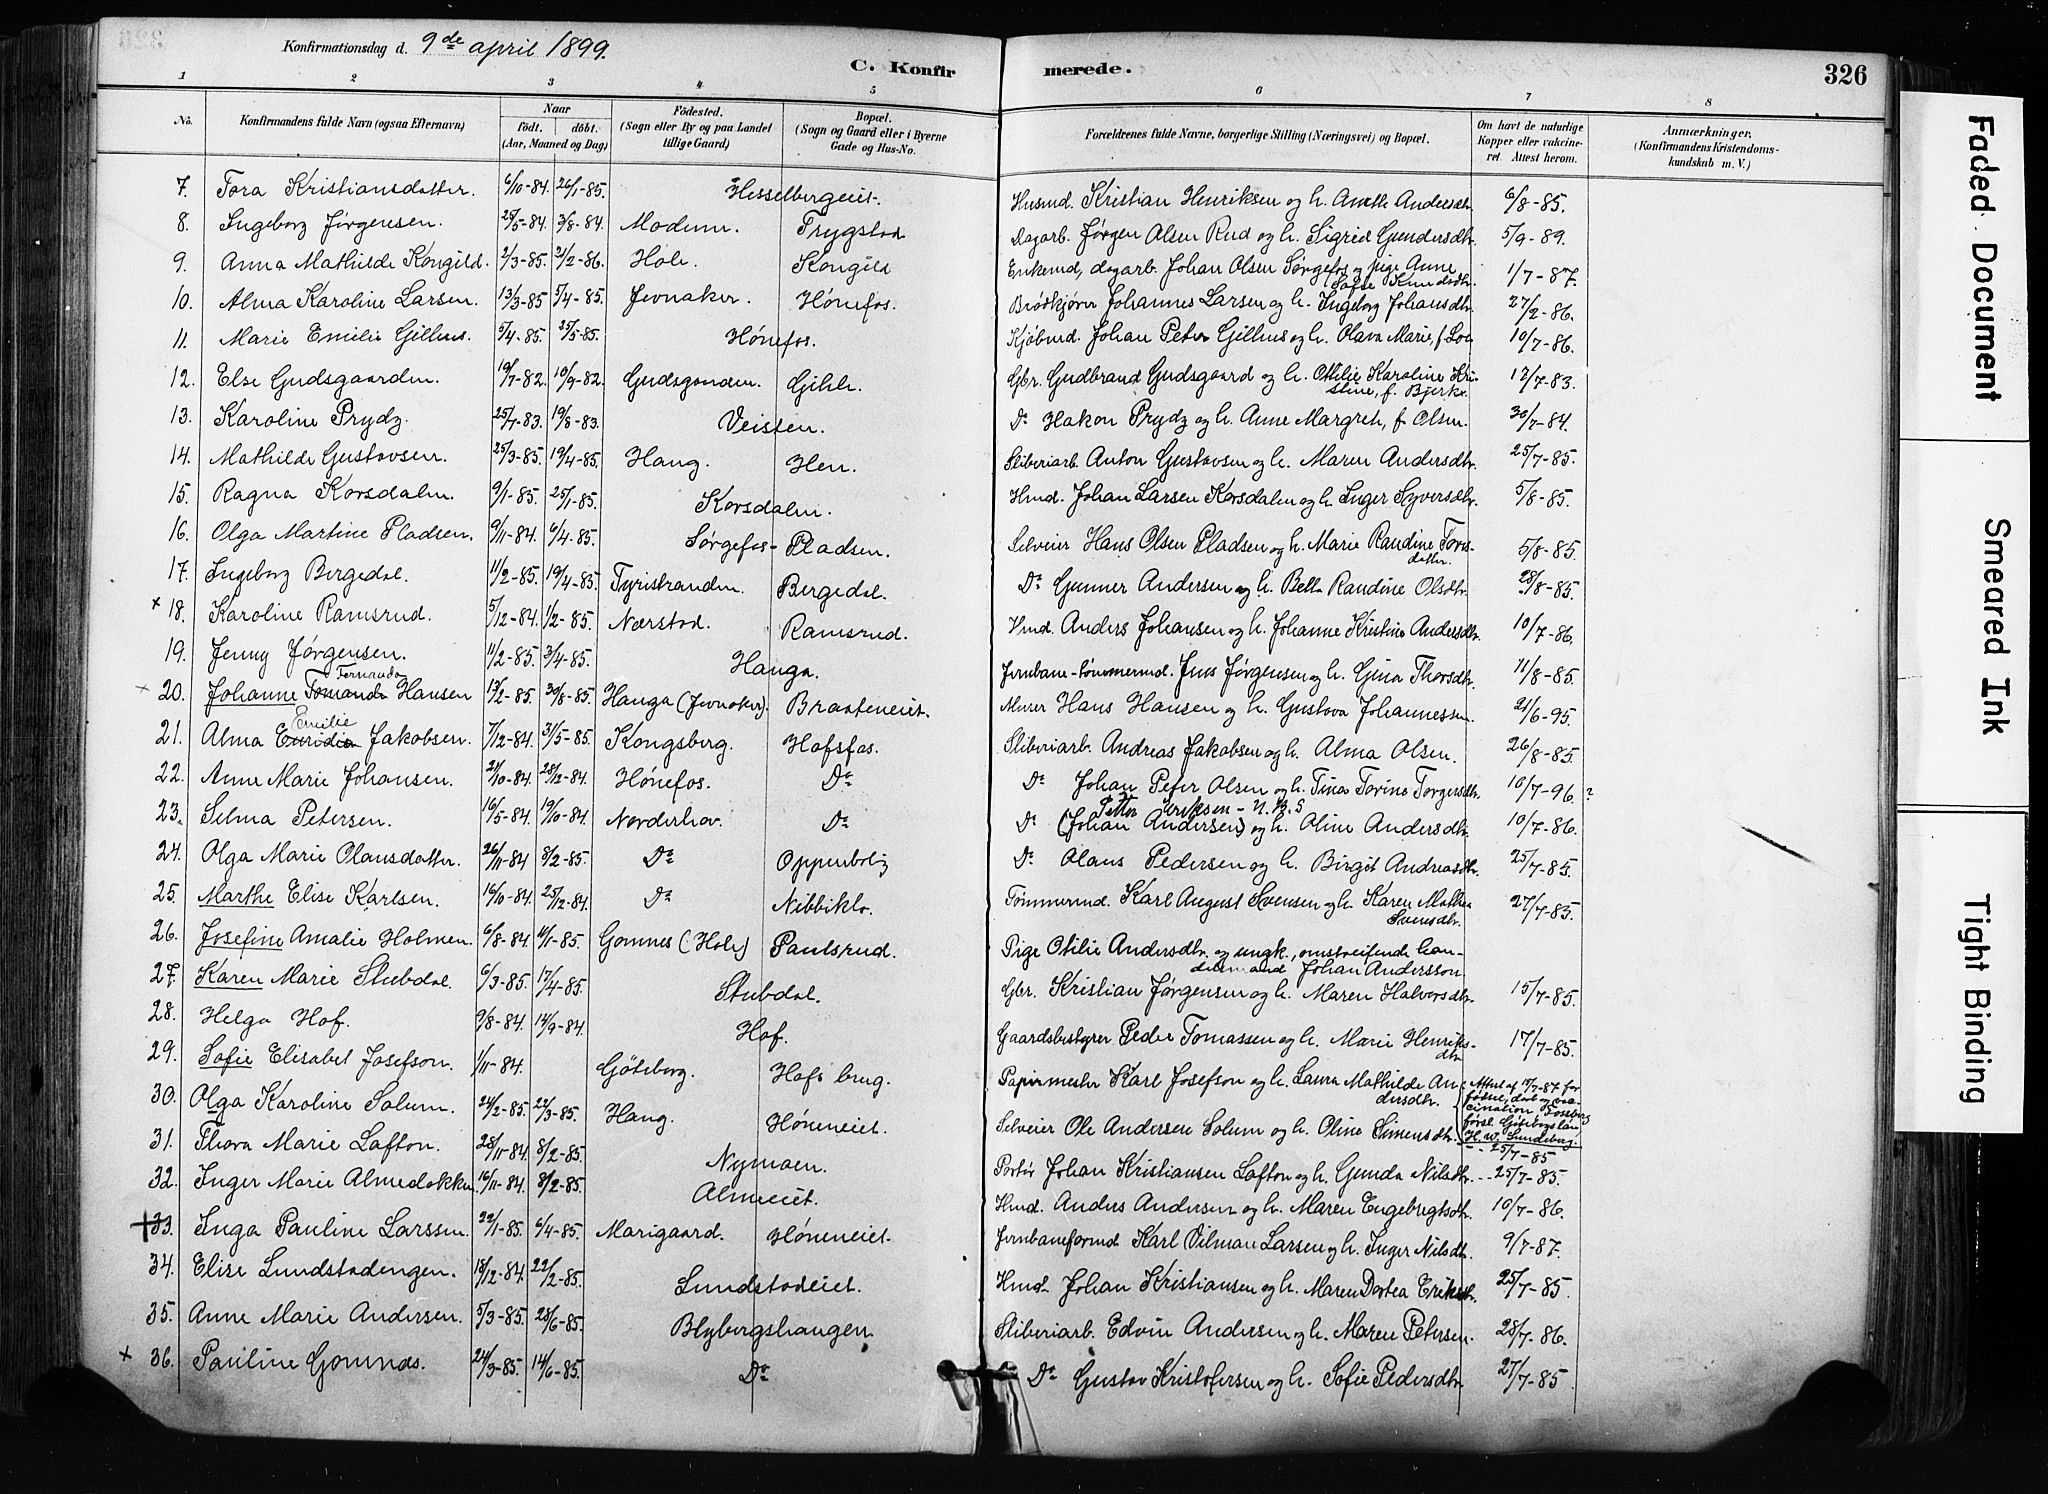 Konfirmationsdag d. 9de april 1899.
C. Konfirmerede.
326
1 2 3 4 5 6 7 8
No. Konfirmandens fulde Navn (ogsaa Efternavn) Naar født. døbt. (Aar, Maaned og Dag) Fødested. (Sogn eller By og paa Landet tillige Gaard) Bopæl. (Sogn og Gaard eller i Byerne Gade og Hus-No. Forældrenes fulde Navne, borgerlige Stilling (Næringsvei) og Bopæl. Om havt de naturlige Kopper eller vakcineret. Attest herom. Anmærkninger. (Konfirmandens Kristendomskundskab m. V.)
7. Tora Kristiansdatter. 6/10-84. 26/1-85. Hesselbergeiet. Husmd. Kristian Henriksen og h. Anethe Andersdtr. 6/8-85.
8. Ingeborg Jørgensen. 25/5-84. 3/8-84. Modum. Trygstad Dagarb. Jørgen Olsen Rud og h. Sigrid Gundersdtr. 5/9-89.
9. Anna Mathilde Kongild. 2/3-85. 21/2-86. Hole. Kongild Enkemd, dagarb. Johan Olsen Sørgefos og pige Anne Sofie Knudsdtr. 1/7-87.
10. Alma Karoline Larsen. 13/3-85 5/4-85. Jevnaker. Hønefos. Brødkjører Johannes Larsen og h. Ingeborg Johansdtr. 27/2-86.
11. Marie Emilie Gillius. 5/4-85. 25/5-85. Hønefos. Kjøbmd. Johan Peter Gillius og h. Olava Marie, f. Loe 10/7-86.
12. Else Gudsgaarden. 19/7-82. 10/9-82. Gudsgaarden. Gihle. Gbr. Gudbrand Gudsgaard og h. Ottilie Karoline Kristine, f. Bjerke. 12/7-83.
13. Karoline Prydz. 25/7-83. 19/8-83. Veisten. Do Hakon Prydz og h. Anne Margrete, f. Olsen. 30/7-84.
14. Mathilde Gustavsen. 25/3-85. 19/4-85. Haug. Hen. Sliberiarb. Anton Gustavsen og h. Maren Andersdtr. 25/7-85.
15. Ragna Korsdalen. 9/1-85. 25/1-85. Korsdalen. Hmd. Johan Larsen Korsdalen og h. Inger Syversdtr. 5/8-85.
16. Olga Martine Pladsen. 9/11-84. 6/4-85. Sørgefos-Pladsen. Selveier Hans Olsen Pladsen og h. Marie Randine Torsdatter. 5/8-85.
17. Ingeborg Bergedal. 11/2-85. 19/4-85. Tyristranden. Bergedal. Do Gunner Andersen og h. Betle Randine Olsdtr. 28/8-85.
× 18. Karoline Ramsrud. 5/12-84. 1/2-85. Nærstad. Ramsrud. Hmd. Anders Johansen og h. Johanne Kristine Andersdtr. 10/7-86.
19. Jenny Jørgensen. 11/2-85. 3/4-85. Hauga. Jernbane-tømmermd. Jens Jørgensen og h. Gina Thorsdtr. 11/8-85.
× 20. Johanne Fernanda Hansen 13/2-85. 30/8-85. Hauga (Jevnaker). Braateneiet. Murer Hans Hansen og h. Gustava Johannessen. 21/6-95.
21. Alma Emilie Jakobsen. 7/12-84. 31/5-85. Kongsberg. Hofsfos. Sliberiarb. Andreas Jakobsen og h. Alma Olsen. 26/8-85.
22. Anne Marie Johansen. 21/10-84. 28/12-84. Hønefos. Do Do Johan Peter Olsen og h. Tina Torine Torgersdtr. 10/7-96. ?
23. Selma Petersen. 16/5-84. 19/10-84. Norderhov. Do Do Petter Eriksen - N.B.S (Johan Andersen) og h. Oline Andersdtr. 10/7-86.
24. Olga Marie Olausdatter. 26/11-84 8/2-85. Do Oppenbolig Do Olaus Pedersen og h. Birgit Andreasdtr. 25/7-85.
25. Marthe Elise Karlsen. 16/10-84. 25/12-84. Do Nibbiklo. Tømmermd. Karl August Svensen og h. Karen Mathea Svensdtr. 27/7-85.
26. Josefine Amalie Holmen. 6/8-84. 11/1-85. Gomnes (Hole) Paulsrud. Pige Otilie Andersdtr. og ungk., omstreifende handelsmand Johan Andersson
27. Karen Marie Stubdal. 6/3-85. 17/4-85. Stubdal. Gbr. Kristian Jørgensen og h. Maren Halvorsdtr. 15/7-85.
28. Helga Hof. 9/8-84. 14/9-84. Hof. Gaardsbestyrer Peder Tomassen og h. Marie Henriksdtr. 17/7-85.
29. Sofie Elisabet Josefson. 1/11-84. Göteborg. Hofs brug. Papirmester Karl Josefson og h. Laura Mathilde Andersdtr. Attest af 17/7-87 for fødsel, daab og vaccination, førsl. Göteborgs län H. W. Lundeberg.
30. Olga Karoline Solum. 24/2-85. 22/3-85. Haug. Høneneiet. Selveier Ole Andersen Solum og h. Oline Simensdtr. 25/7-85
31. Thora Marie Lafton. 28/11-84. 8/2-85. Nymoen. Portør Johan Kristiansen Lafton og h. Gunda Nilsdtr. 25/7-85.
32. Inger Marie Almedokken 16/11-84. 8/2-85. Almeeiet. Hmd. Anders Andersen og h. Maren Engebregtsdtr. 10/7-86.
+ 33. Inga Pauline Larssen. 22/1-85. 6/4-85. Marigaard. Høneneiet. Jernbaneformd Karl Vilman Larsen og h. Inger Nilsdtr. 9/7-87.
34. Elise Lundstadengen. 18/12-84. 22/2-85. Lundstadeiet. Hmd. Johan Kristiansen og h. Maren Dortea Eriksdtr. 25/7-85.
35. Anne Marie Andersen. 5/3-85. 28/6-85. Blybergshaugen Sliberiarb. Edvin Andersen og h. Maren Petersen. 28/7-86.
× 36. Pauline Gomnæs. 24/3-85. 14/6-85. Do Do Gustav Kristofersen og h. Sofie Pedersdtr. 27/7-85
Faded Document
Smeared Ink
Tight Binding